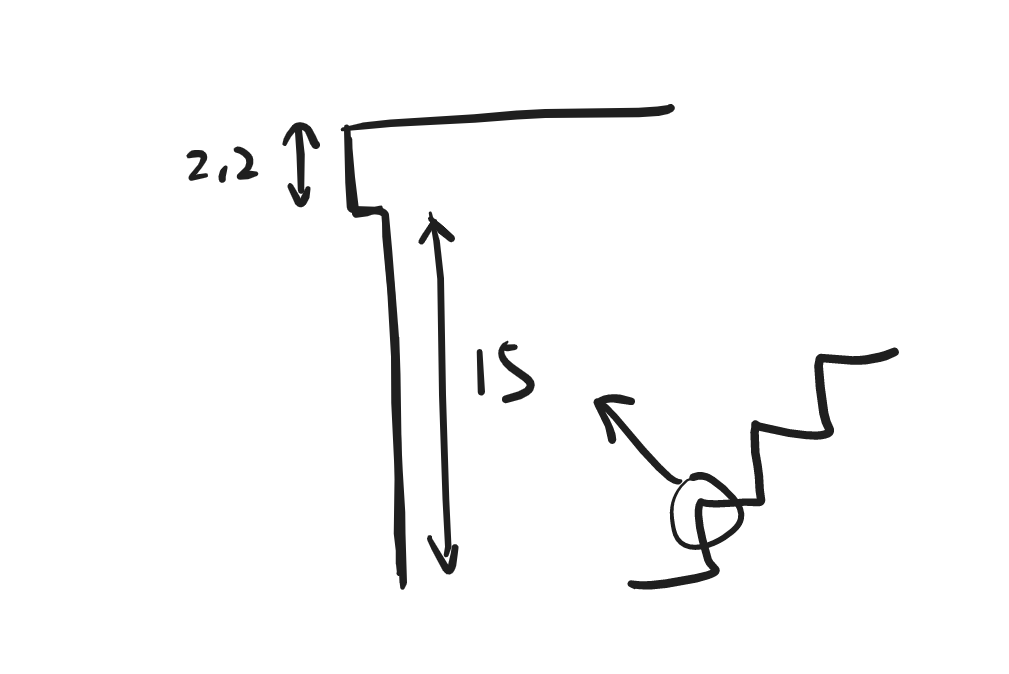 2,2
15